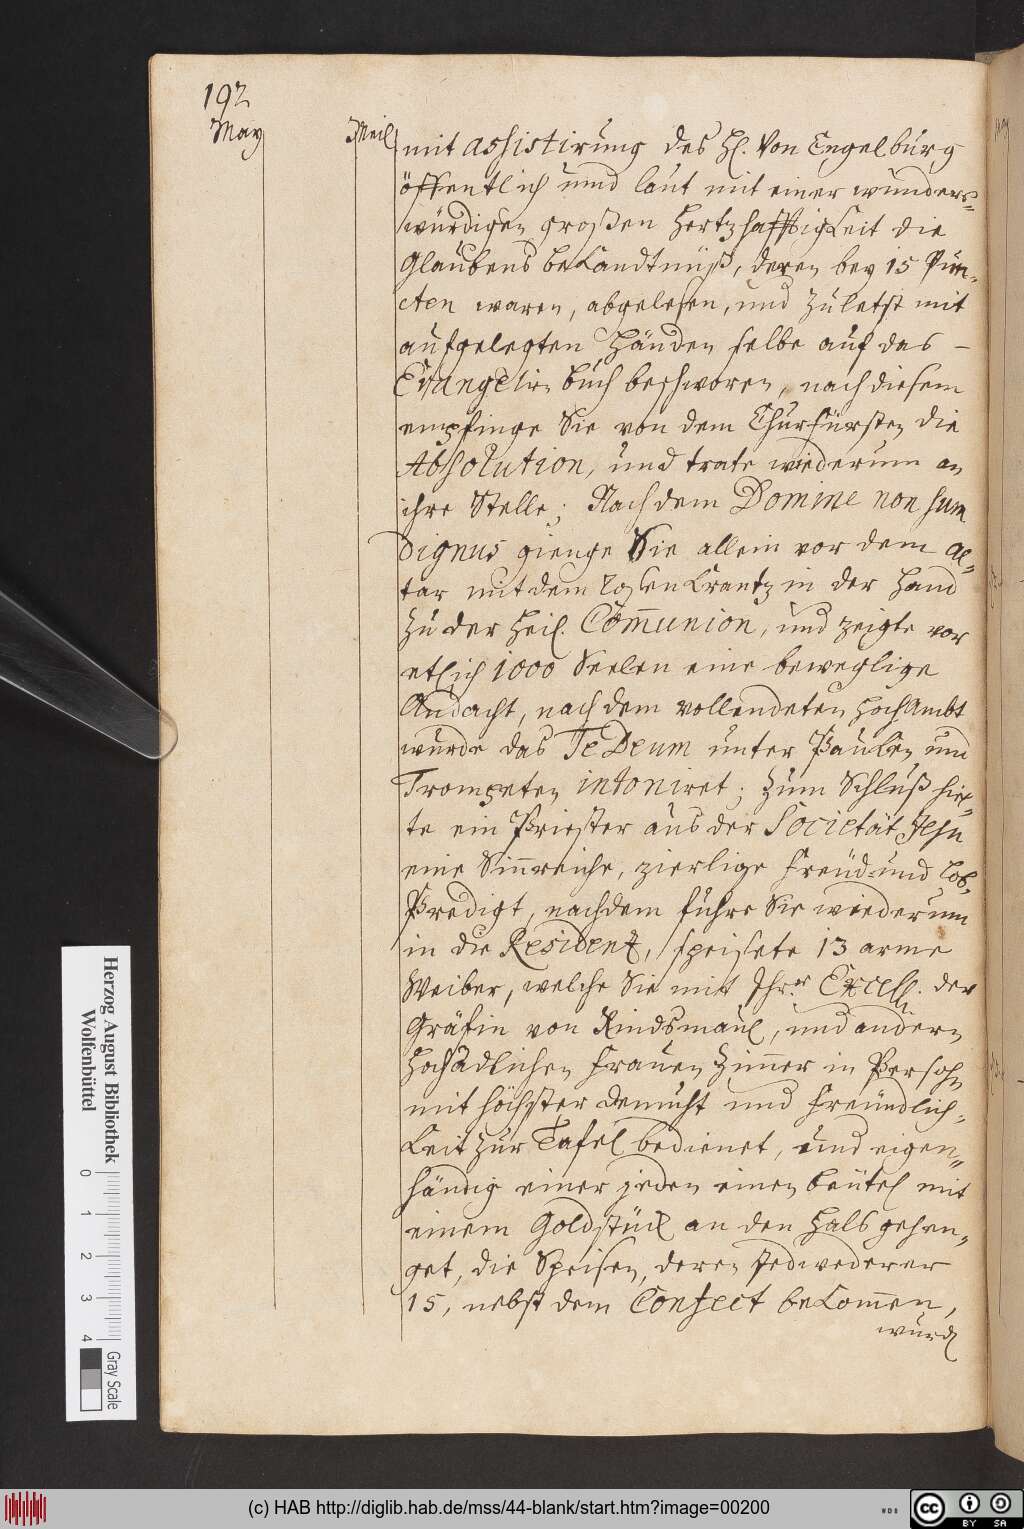 192
May
Meil
mit assistirung des H. Von Engelburg
öffentlich und laut mit einer wunders-
würdigen großen Hertzhafftigkeit die
Glaubens bekandtnüß, deren bey 15 Pun-
cten waren, abgelesen, und zuletst mit
aufgelegten Händen selbe auf das –
Evangelien buch beschworen, nach diesem
empfinge Sie von dem Churfürsten die
Absolution, und trate wiederum an
ihre Stelle; Nach dem Domine non sum
dignus gienge Sie allein vor dem Al-
tar mit dem Rosenkrantz in der Hand
zu der Heil. Com̄union, und zeigte vor
etlich 1000 Seelen eine beweglige
Andacht, nach dem vollendeten HochAmbt
wurde das Te Deum unter Paucken und
Trompeten intoniret; zum Schluß hiel-
te ein Priester aus der Societät Jesu
eine Sin̄reiche, zierlige Freud- und Lob-
Predigt, nachdem fuhre Sie wiederum
in die Residentz, speisete 13 arme
Weiber, welche Sie mit Ihr Excell. der
Gräfin von Rindsmaul, und andern
HochAdlichen Frauen Zim̄er in Persohn
mit höchster demuht und Freündlich-
keit zur Tafel bedienet, und eigen-
händig einer jeden einen beütel mit
einem Goldstück an den Hals gehen-
get, die Speisen, deren Jedwederer
15, nebst dem Confect bekom̄en,
wurd
Herzog August Bibliothek
Wolfenbüttel
0 1 2 3 4
Gray Scale
(c) HAB http://diglib.hab.de/mss/44-blank/start.htm?image=00200
WDB
cc
BY SA